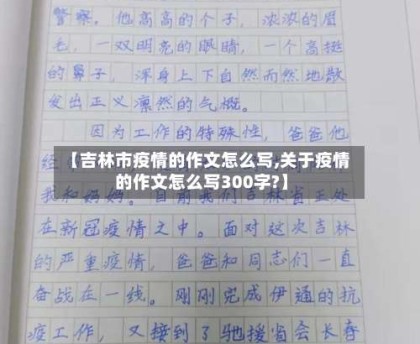 警察。他高高的个子，浓浓的眉
毛，一双明亮的眼睛，一个高挺
的鼻子，浑身上下自然而然地散
发出正义凛然的气概。
因为工作的特殊性，爸爸他
【吉林市疫情的作文怎么写,关于疫情
的作文怎么写300字?】
我和妈妈。目前我们吉林省正处
在新冠疫情之中。面对这次吉林
的严重疫情，爸爸和同志们一直
奋战在一线。刚刚完成伊通的抗
疫工作，又接到了驰援省会长春